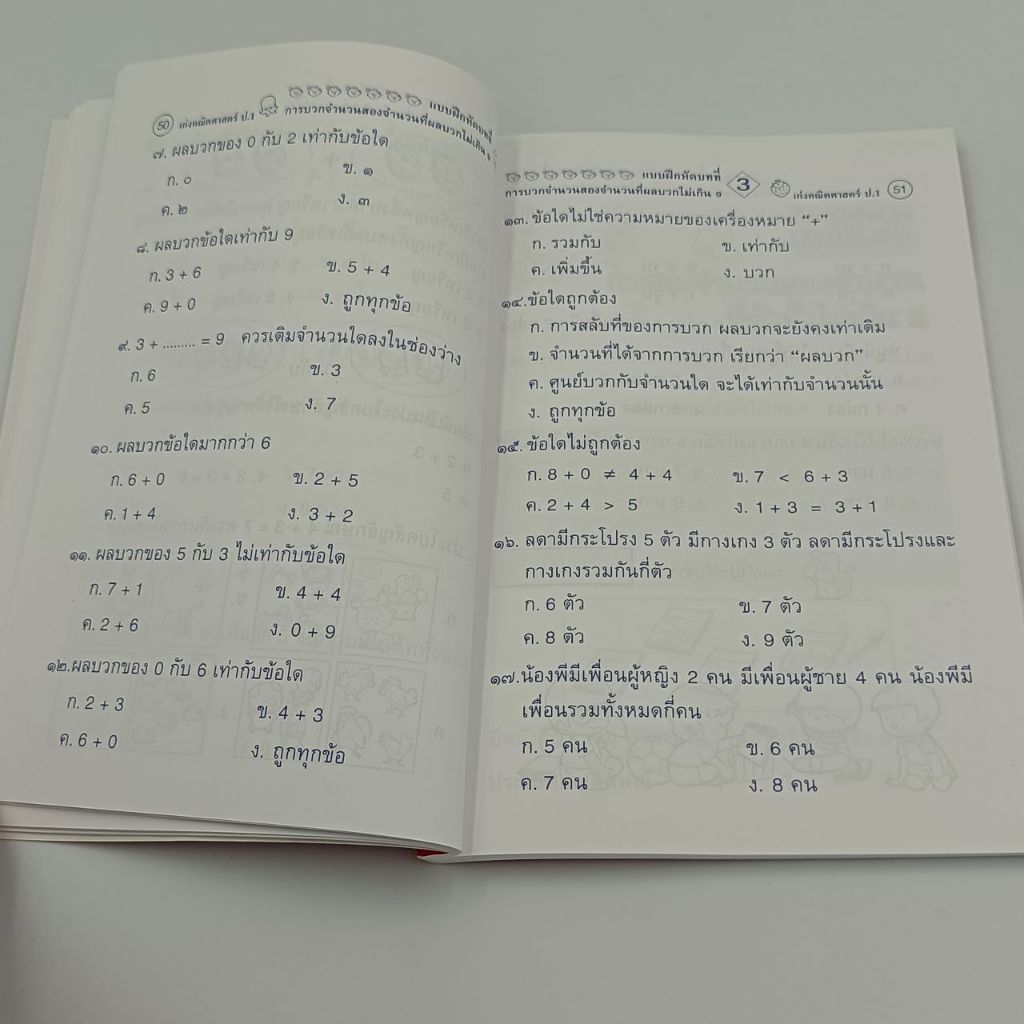 50 เก่งคณิตศาสตร์ ป.1 แบบฝึกหัดบทที่
การบวกจำนวนสองจำนวนที่ผลบวกไม่เกิน ๙
๗. ผลบวกของ 0 กับ 2 เท่ากับข้อใด
ก. ๐ ข. ๑
ค. ๒ ง. ๓
๘. ผลบวกข้อใดเท่ากับ 9
ก. 3 + 6 ข. 5 + 4
ค. 9 + 0 ง. ถูกทุกข้อ
๙. 3 + ......... = 9 ควรเติมจำนวนใดลงในช่องว่าง
ก. 6 ข. 3
ค. 5 ง. 7
๑๐. ผลบวกข้อใดมากกว่า 6
ก. 6 + 0 ข. 2 + 5
ค. 1 + 4 ง. 3 + 2
๑๑. ผลบวกของ 5 กับ 3 ไม่เท่ากับข้อใด
ก. 7 + 1 ข. 4 + 4
ค. 2 + 6 ง. 0 + 9
๑๒.ผลบวกของ 0 กับ 6 เท่ากับข้อใด
ก. 2 + 3 ข. 4 + 3
ค. 6 + 0 ง. ถูกทุกข้อ
แบบฝึกหัดบทที่ 3 เก่งคณิตศาสตร์ ป.1 51
การบวกจำนวนสองจำนวนที่ผลบวกไม่เกิน ๙
๑๓. ข้อใดไม่ใช่ความหมายของเครื่องหมาย “+”
ก. รวมกับ ข. เท่ากับ
ค. เพิ่มขึ้น ง. บวก
๑๔. ข้อใดถูกต้อง
ก. การสลับที่ของการบวก ผลบวกจะยังคงเท่าเดิม
ข. จำนวนที่ได้จากการบวก เรียกว่า “ผลบวก”
ค. ศูนย์บวกกับจำนวนใด จะได้เท่ากับจำนวนนั้น
ง. ถูกทุกข้อ
๑๕. ข้อใดไม่ถูกต้อง
ก. 8 + 0 ≠ 4 + 4 ข. 7 < 6 + 3
ค. 2 + 4 > 5 ง. 1 + 3 = 3 + 1
๑๖. ลดามีกระโปรง 5 ตัว มีกางเกง 3 ตัว ลดามีกระโปรงและ
กางเกงรวมกันกี่ตัว
ก. 6 ตัว ข. 7 ตัว
ค. 8 ตัว ง. 9 ตัว
๑๗.น้องพีมีเพื่อนผู้หญิง 2 คน มีเพื่อนผู้ชาย 4 คน น้องพีมี
เพื่อนรวมทั้งหมดกี่คน
ก. 5 คน ข. 6 คน
ค. 7 คน ง. 8 คน